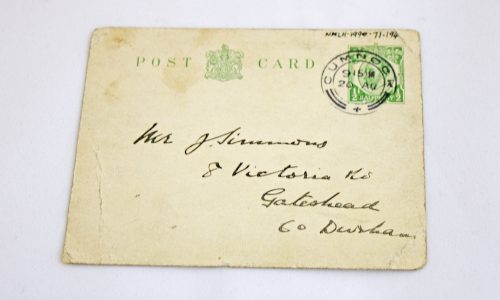 NMLH-1990-71-194
POST CARD
CUMNOCK
915 M
20 AU
½ ½
Mr J. Simmons
8 Victoria Rd
Gateshead
Co Durham